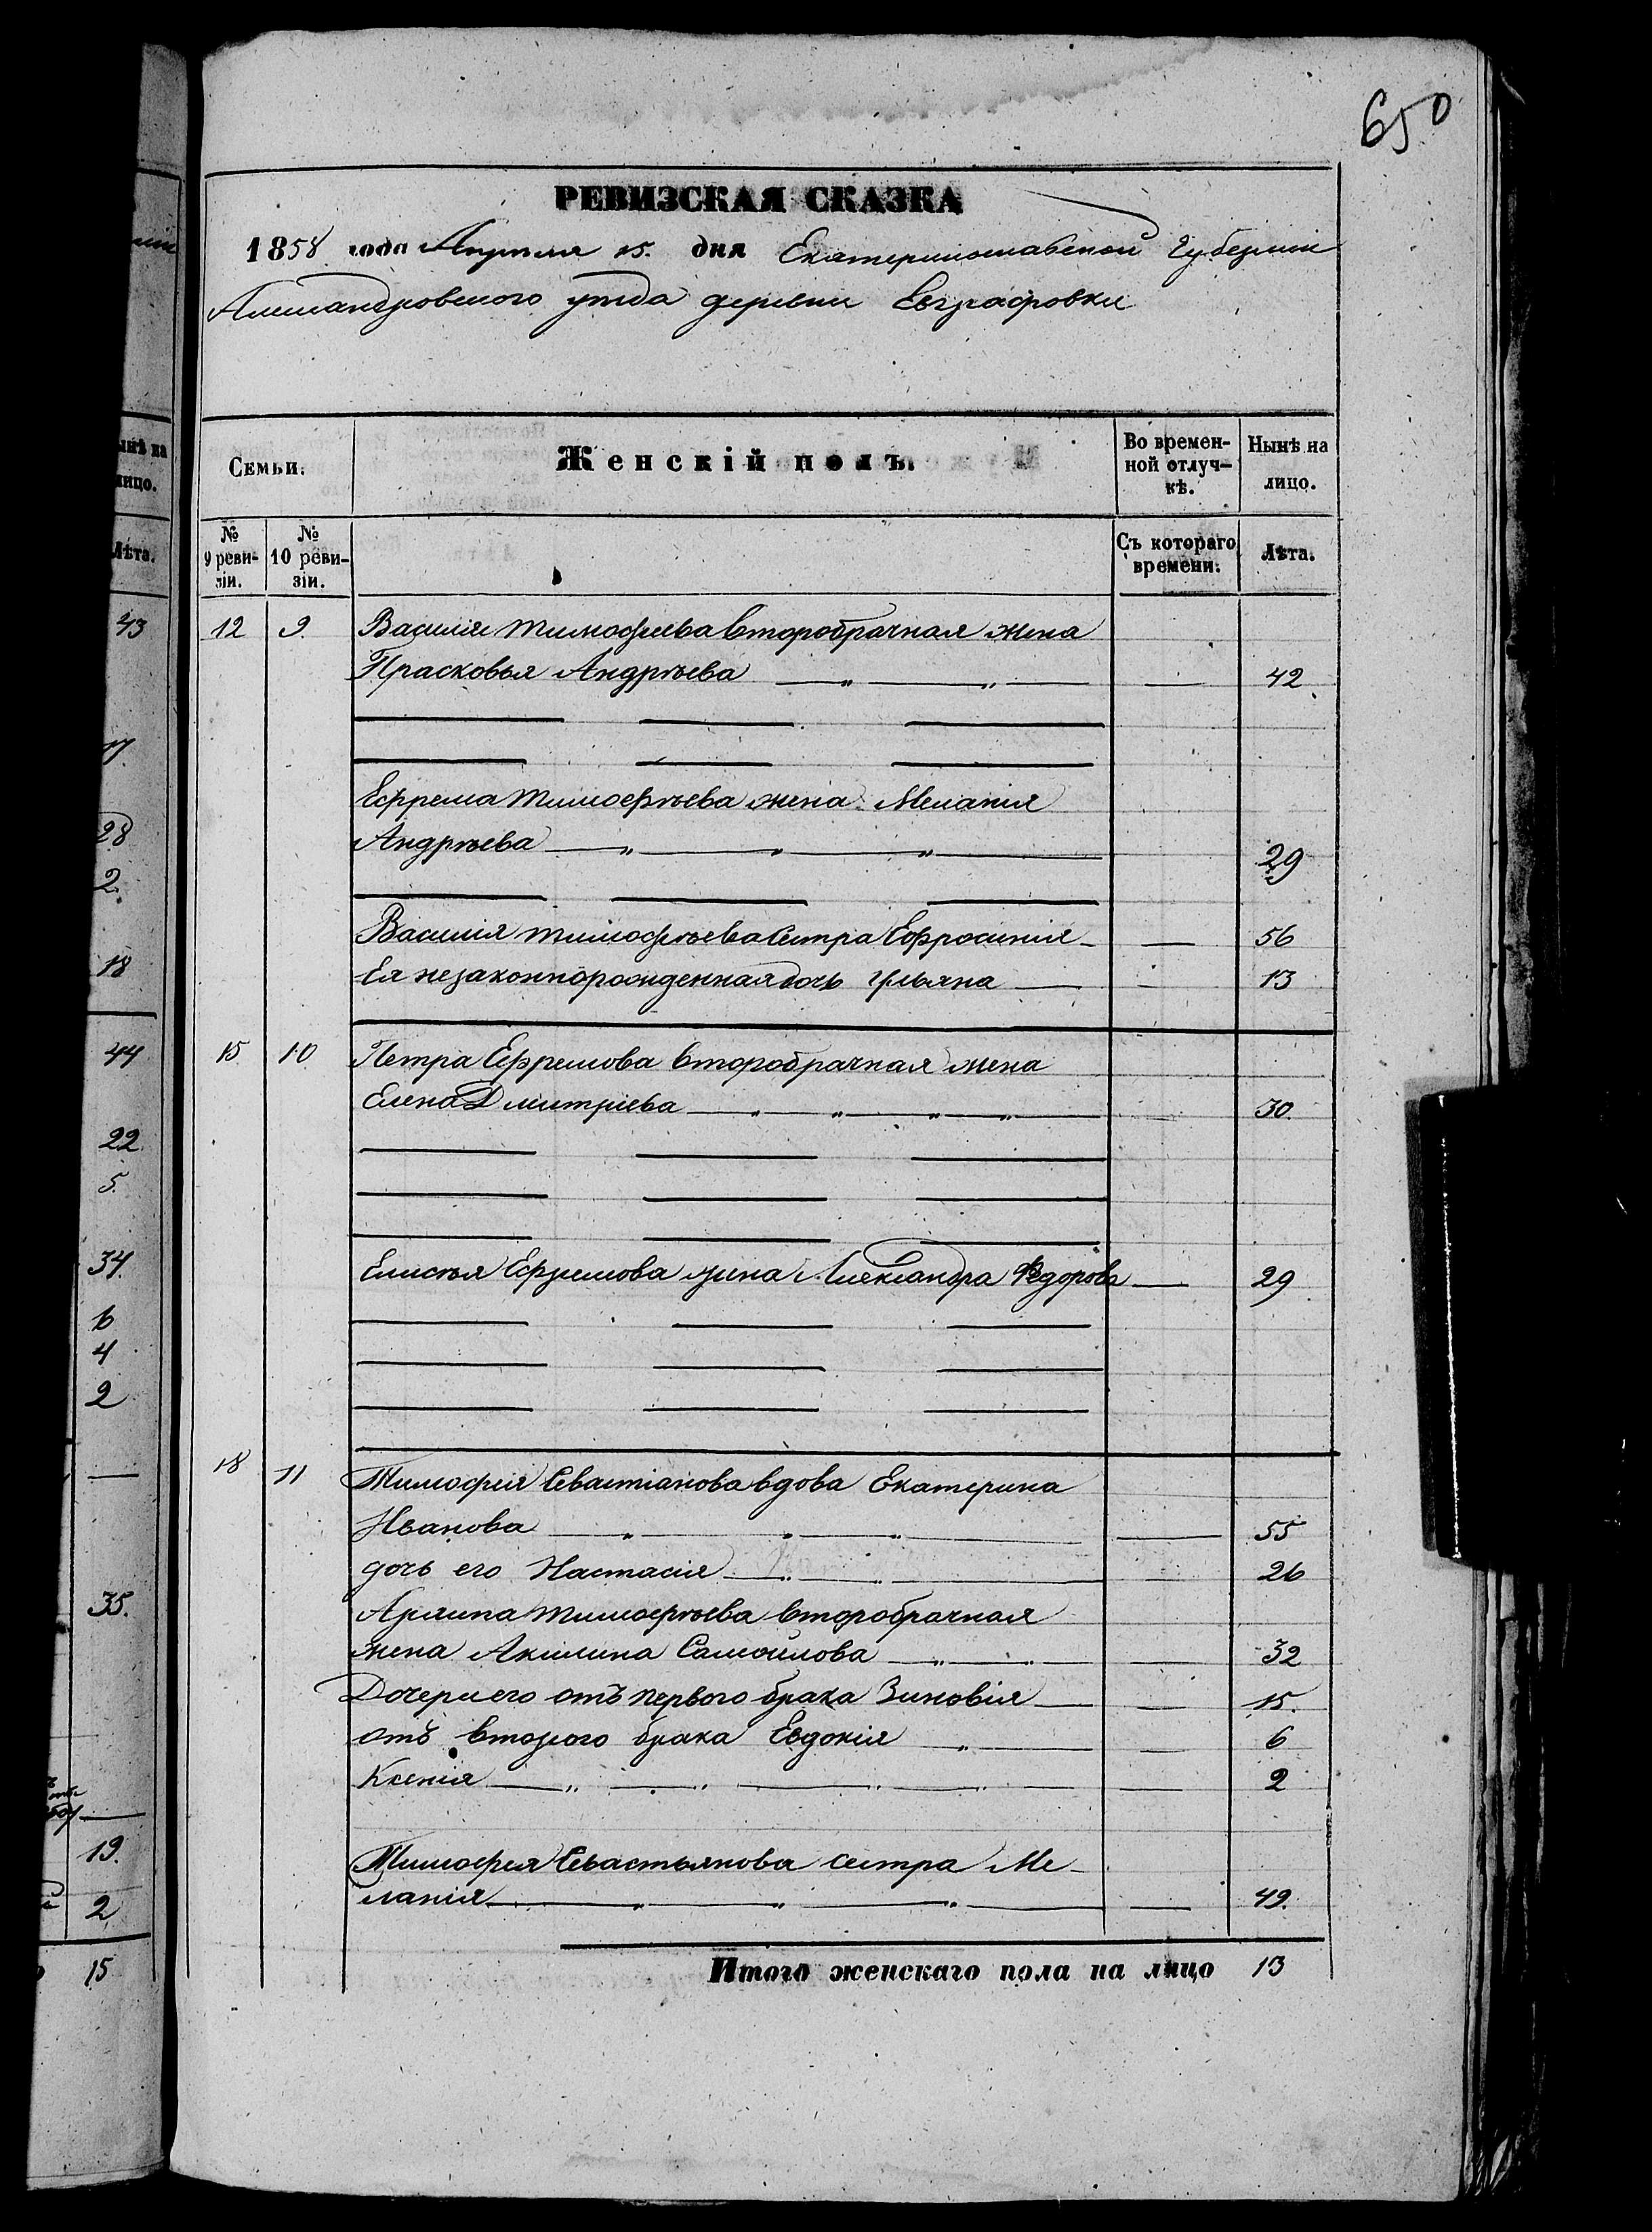 650
РЕВИЗСКАЯ СКАЗКА
1858 года Апреля 15. дня Екатеринославской Губернии
Александровского уезда деревни Евграфовки
Семьи.
Женскій полъ.
Во времен-
ной отлуч-
кѣ.
Нынѣ на
лицо.
№
9 реви-
зіи.
№
10 реви-
зіи.
Съ котораго
времени.
Лѣта.
12 9. Василия Тимофеева второбрачная жена
Прасковья Андрѣева — " — " — — 42.
Ефрема Тимофѣева жена Меланія
Андрѣева — " — " — " — 29
Василія Тимофѣева Сестра Ефросинія — — 56
Ея незаконнорожденная дочь Ульяна — — 13
15 10 Петра Ефремова второбрачная жена
Елена Дмитриева — " — " — " — " — — 30.
Ефремова жена Александра Федорова — 29
18 11 Тимофея Севастіанова вдова Екатерина
Иванова — " — " — " — — 55
дочь его Настасія — " — " — — 26
Тимофѣева второбрачная
жена Акилина Самойлова — " — " — — 32
Дочери его отъ первого брака Зиновія — — 15.
отъ второго брака Евдокія " — — 6
Ксенія — " — " — " — " — — 2
Тимофея Севастьянова сестра Ме-
ланія — " — " — " — — 49.
Итого женскаго пола на лицо 13
ынѣ на
лицо.
Лѣта.
43
17.
28
2.
18
44
22.
5.
34.
6
4
2
35.
19.
2
15